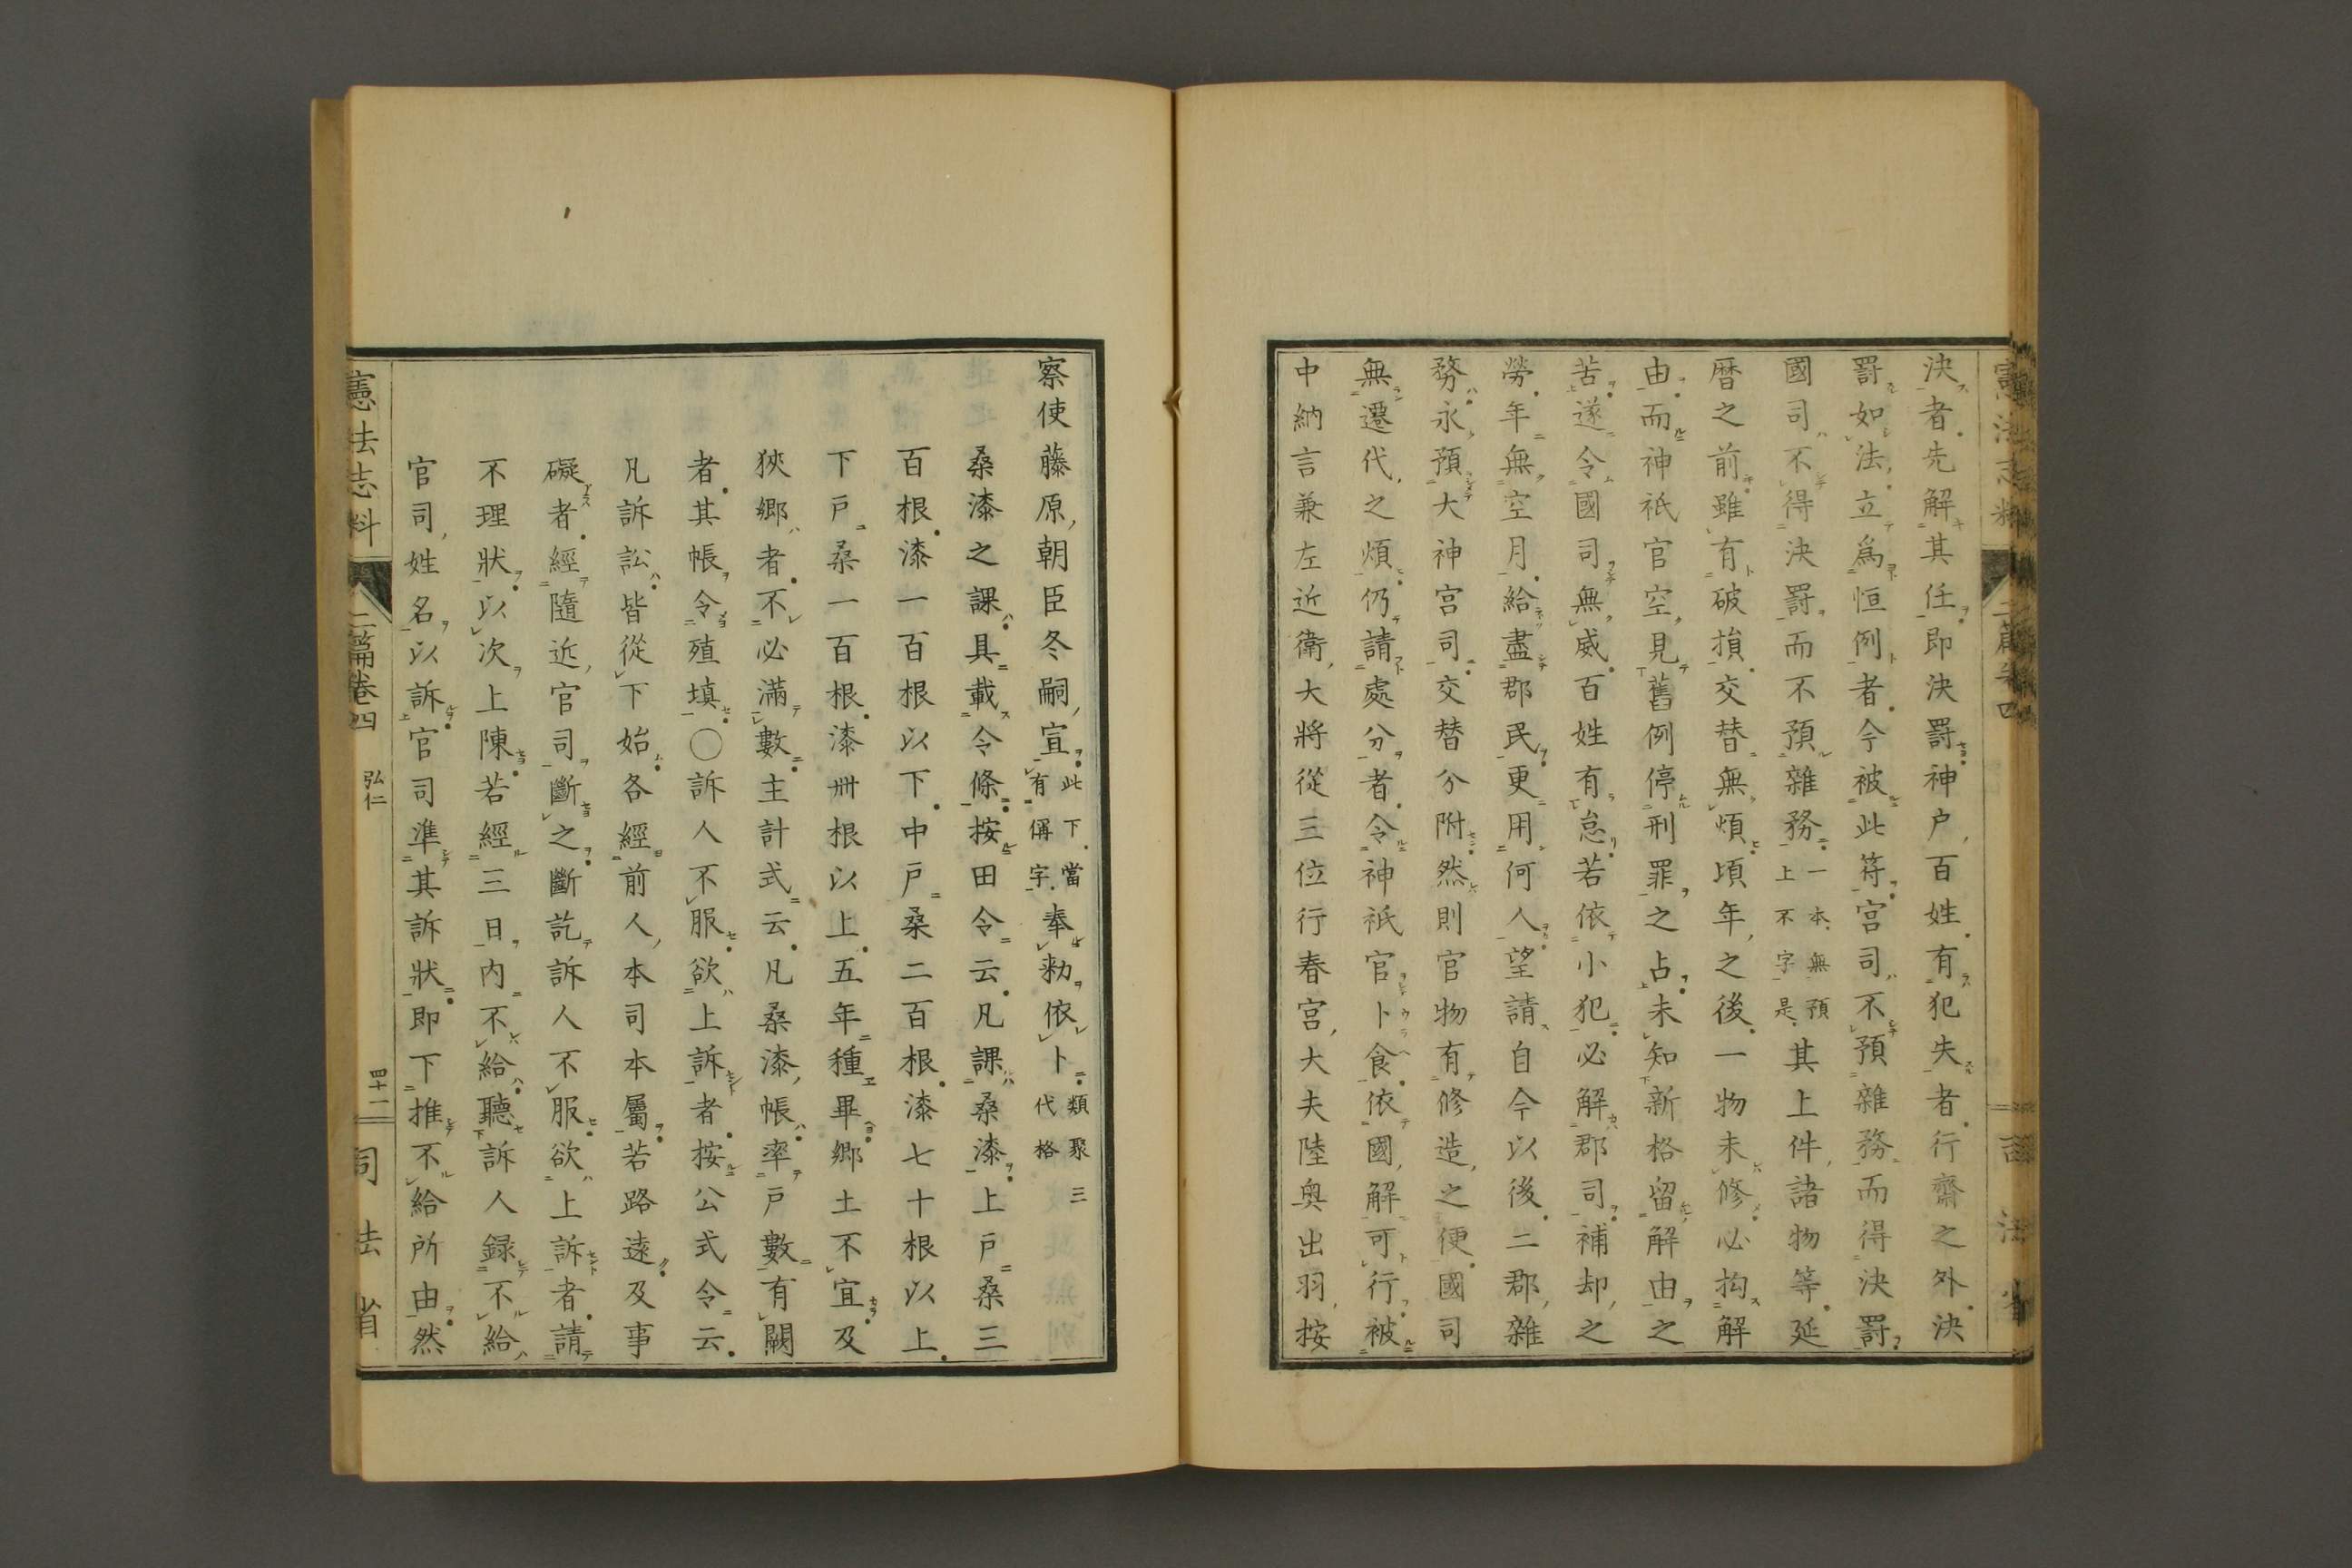 決者先解其任即決罸神戸百姓有犯失者行齋之外決
罸如法立爲恒例者今被此符宮司不預雜務而得決罸
國司不得決罸而不預雜務一本無預上不字是其上件諸物等延
暦之前雖有破損交替無煩頃年之後一物未修必拘解
由而神祇官空見舊例停刑罪之占未知新格留解由之
苦遂令國司無威百姓有怠若依小犯必解郡司補却之
勞年無空月給盡郡民更用何人望請自今以後二郡雜
務永預大神宮司交替分附然則官物有修造之便國司
無遷代之煩仍請處分者令神祇官卜食依國解可行被
中納言兼左近衛大將從三位行春宮大夫陸奥出羽按
察使藤原朝臣冬嗣宣此下當有偁字奉勑依卜類聚三代格
桑漆之課具載令條按田令云凡課桑漆上戸桑三
百根漆一百根以下中戸桑二百根漆七十根以上
下戸桑一百根漆卌根以上五年種畢郷土不宜及
狹郷者不必滿數主計式云凡桑漆帳率戸數有闕
者其帳令殖填〇訴人不服欲上訴者按公式令云
凡訴訟皆從下始各經前人本司本屬若路遠及事
礙者經隨近官司斷之斷訖訴人不服欲上訴者請
不理狀以次上陳若經三日内不給聽訴人録不給
官司姓名以訴官司準其訴狀即下推不給所由然
憲法志料 二篇卷四 弘仁 四十二 司法省